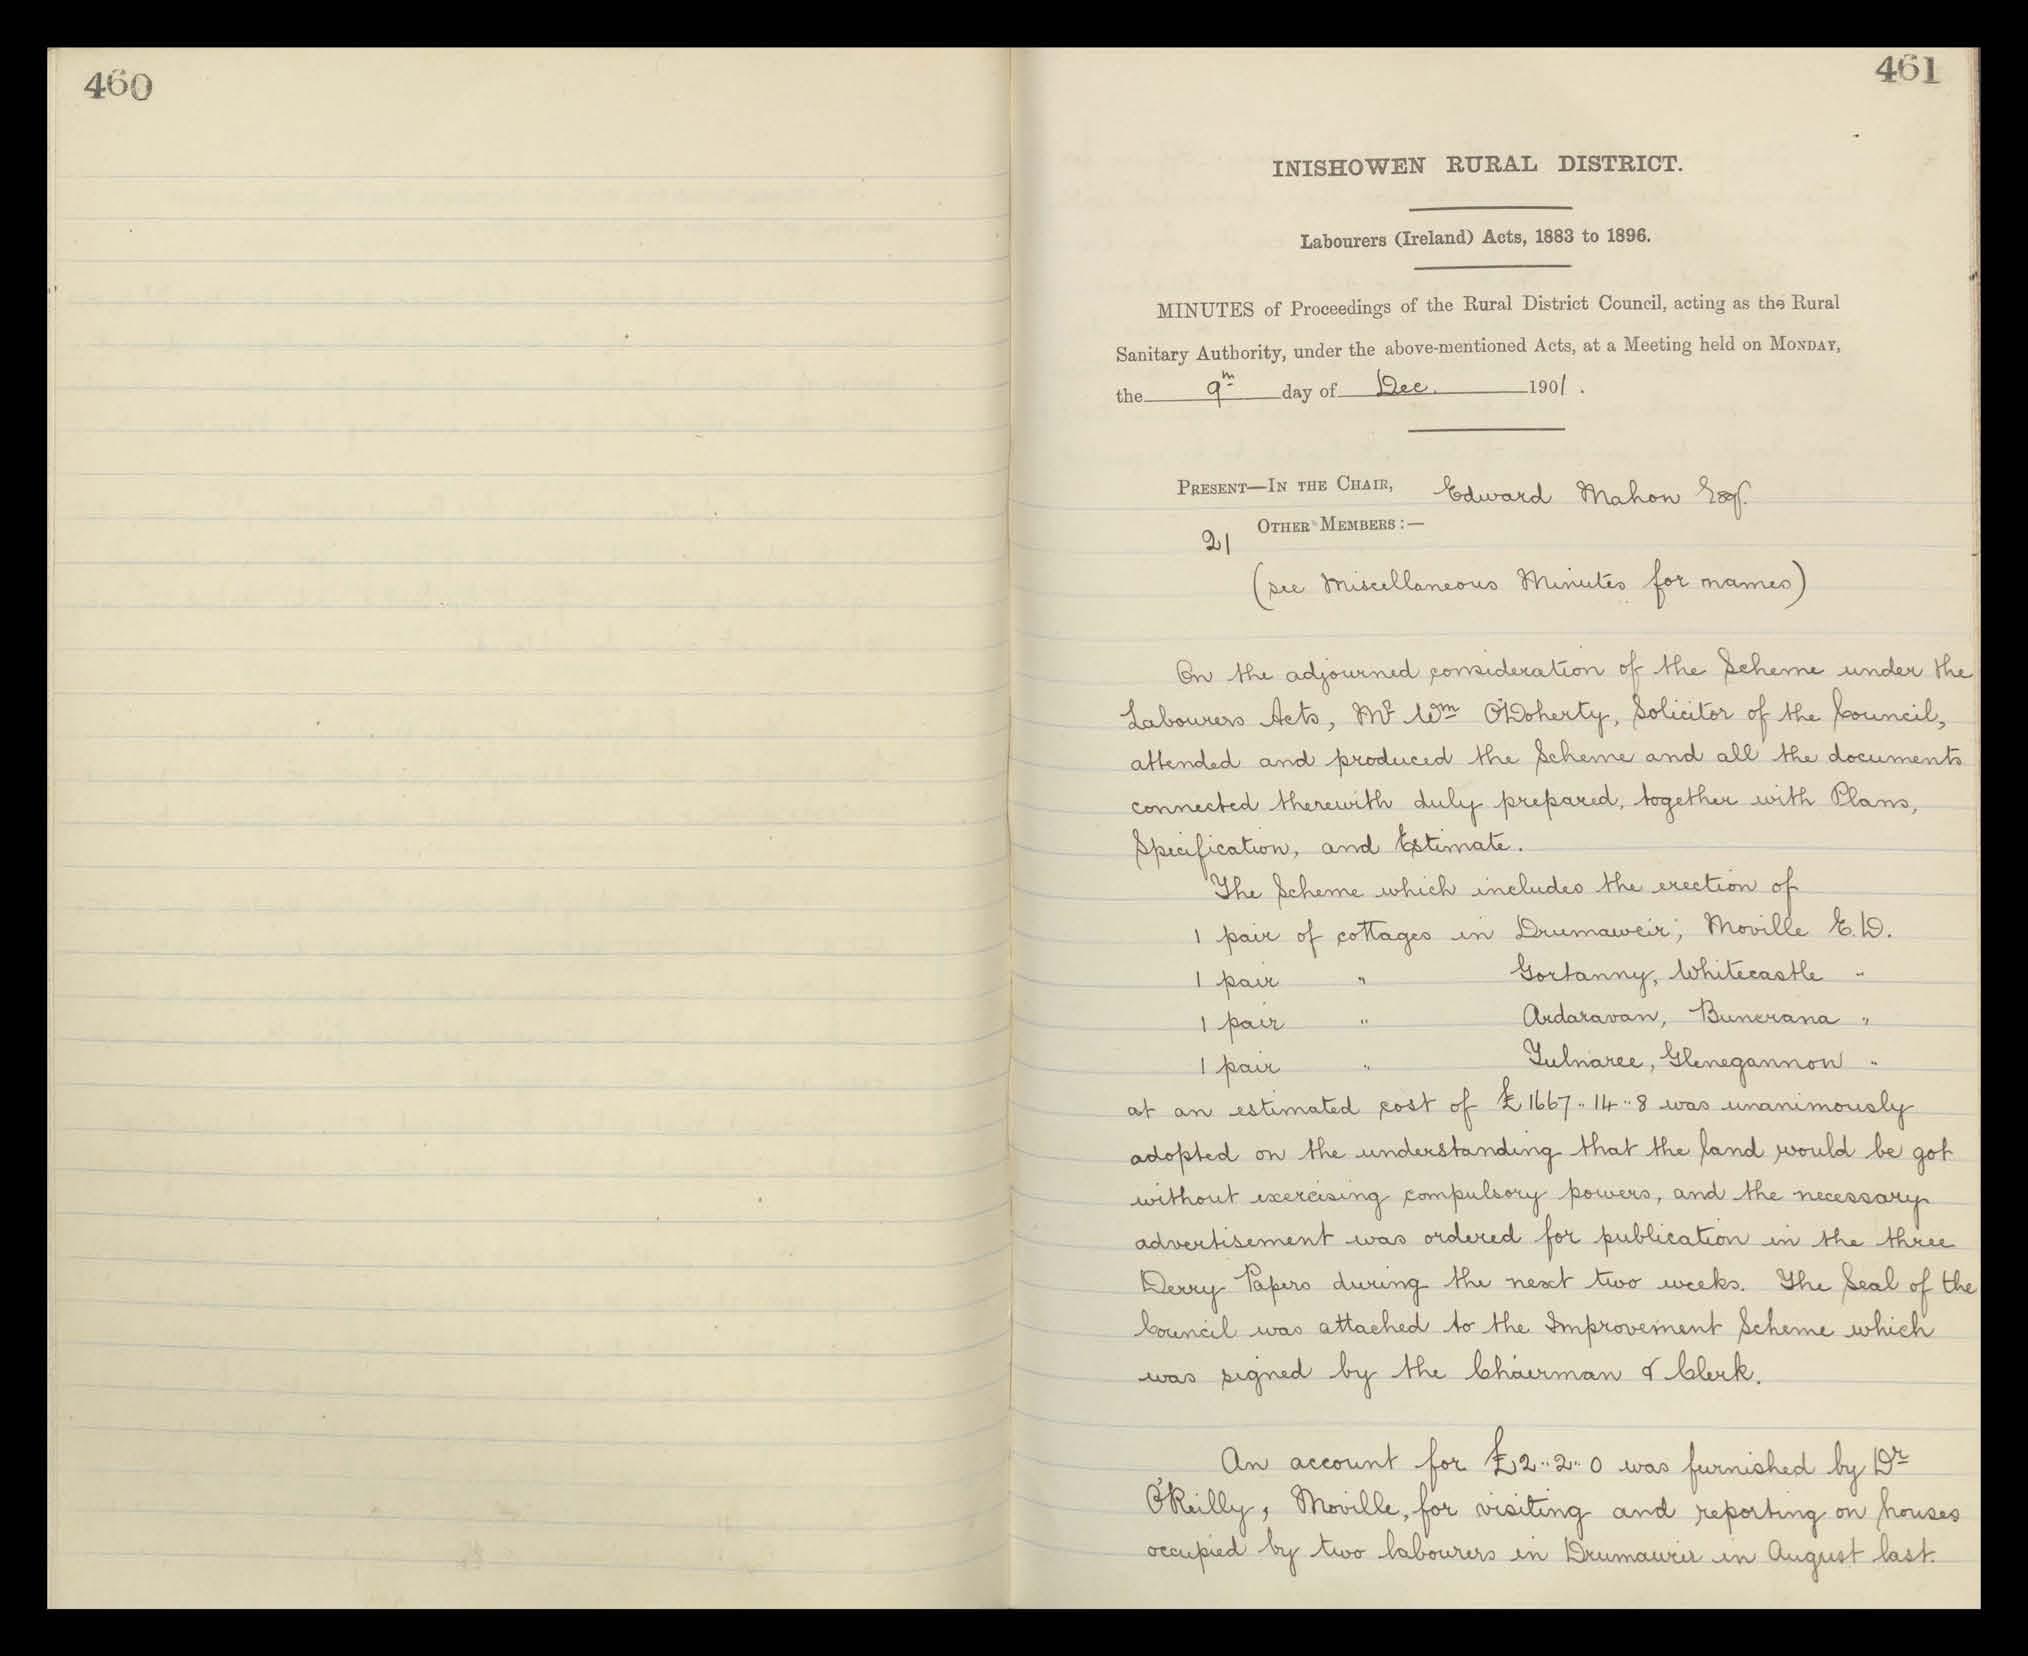 460
461
INISHOWEN RURAL DISTRICT.
Labourers (Ireland) Acts, 1883 to 1896.
MINUTES of Proceedings of the Rural District Council, acting as the Rural
Sanitary Authority, under the above-mentioned Acts, at a Meeting held on MONDAY,
the 9th day of Dec. 1901.
PRESENT—IN THE CHAIR, Edward Mahon Esqr.
OTHER MEMBERS:—
21
(see Miscellaneous Minutes for names)
On the adjourned consideration of the Scheme under the
Labourers Acts, Mr Wm O'Doherty, Solicitor of the Council,
attended and produced the Scheme and all the documents
connected therewith duly prepared, together with Plans,
Specification, and Estimate.
The Scheme which includes the erection of
1 pair of cottages in Drumaweir, Moville E.D.
1 pair " Gortanny, Whitecastle "
1 pair " Ardaravan, Buncrana "
1 pair " Tulnaree, Glenegannon "
at an estimated cost of £1667..14..8 was unanimously
adopted on the understanding that the land would be got
without exercising compulsory powers, and the necessary
advertisement was ordered for publication in the three
Derry Papers during the next two weeks. The Seal of the
Council was attached to the Improvement Scheme which
was signed by the Chairman & Clerk.
An account for £2..2..0 was furnished by Dr
O'Reilly, Moville, for visiting and reporting on houses
occupied by two labourers in Drumaweir in August last.